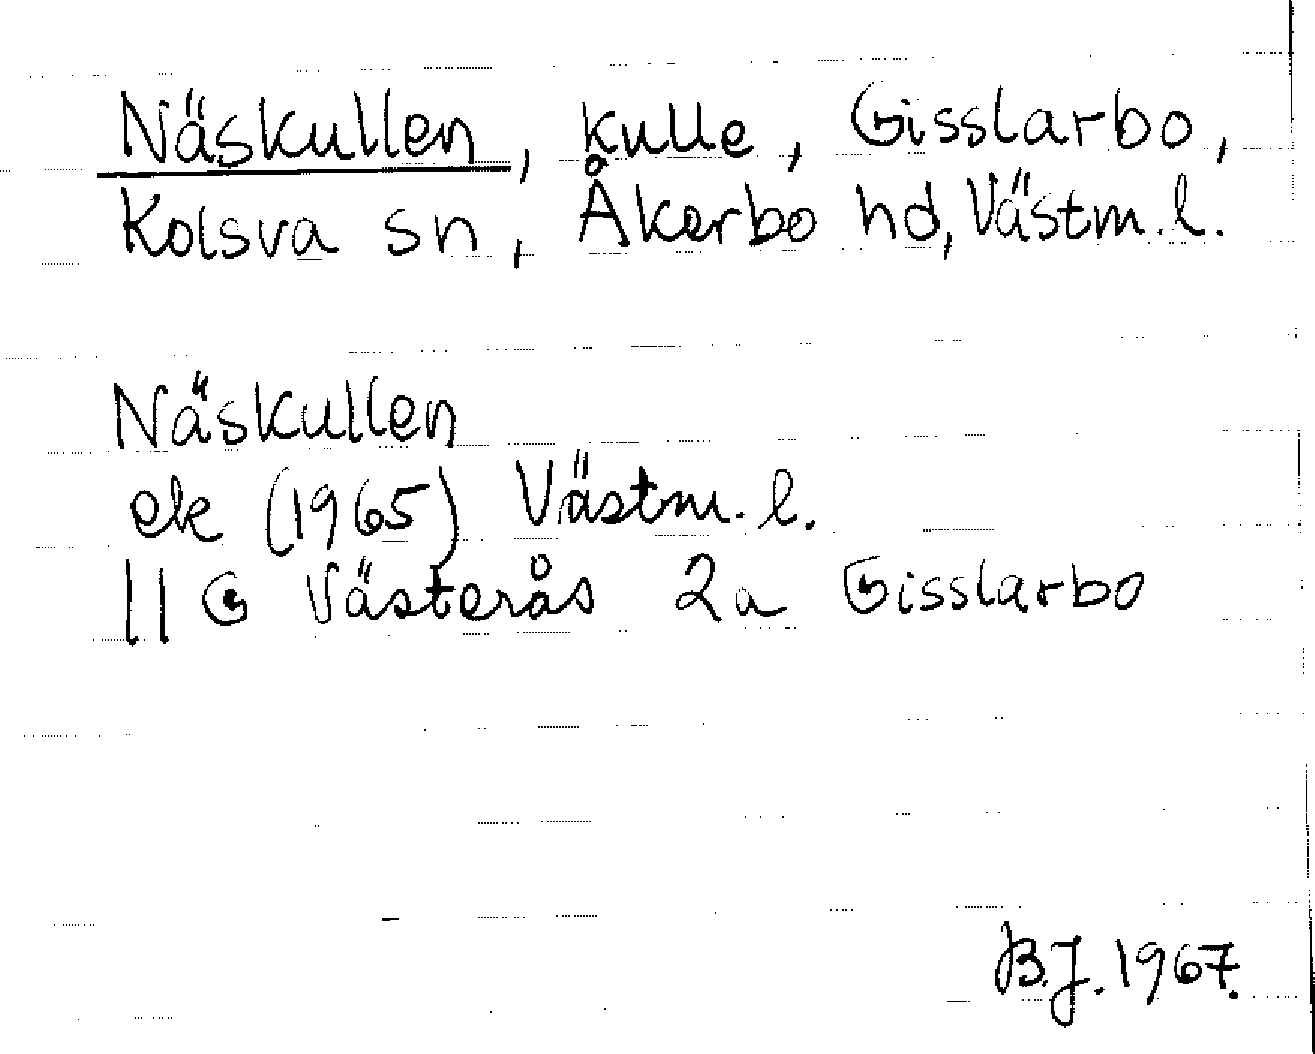 Näskullen, kulle, Gisslarbo,
Kolsva sn, Åkerbo hd, Västm. l.
Näskullen
ek (1965) Västm. l.
11 G Västerås 2a Gisslarbo
B.J. 1967.